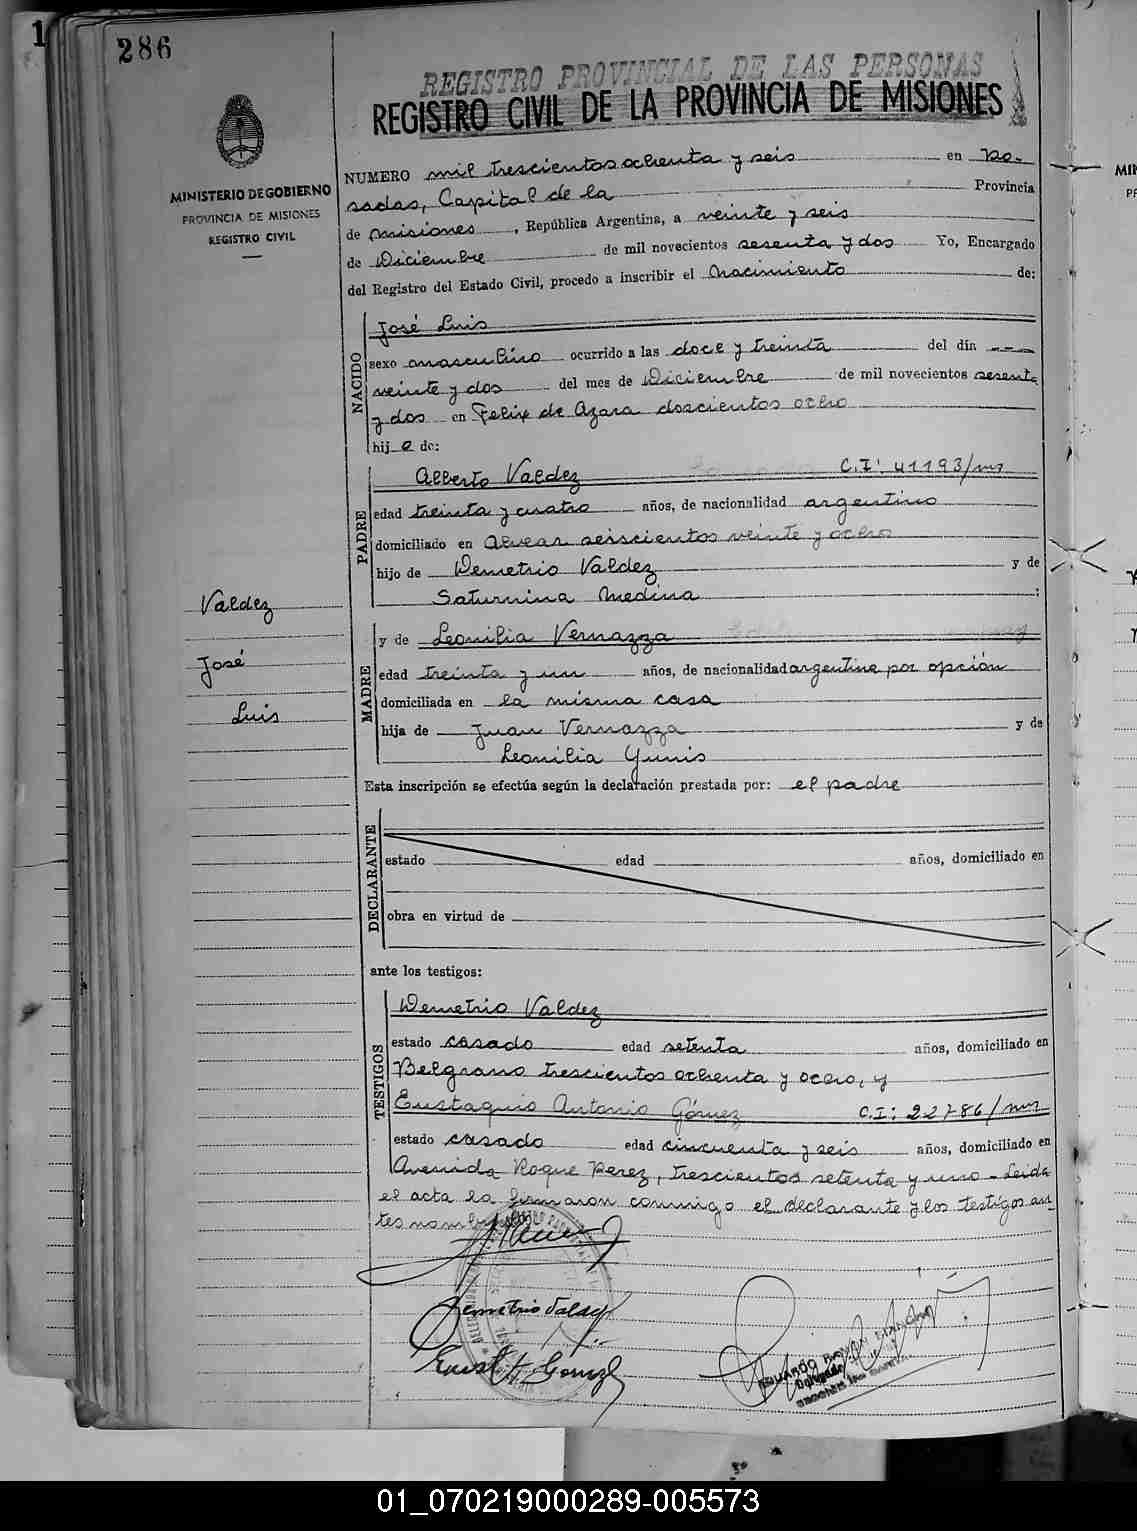 1
286
REGISTRO PROVINCIAL DE LAS PERSONAS
REGISTRO CIVIL DE LA PROVINCIA DE MISIONES
MINISTERIO DE GOBIERNO
PROVINCIA DE MISIONES
REGISTRO CIVIL
NUMERO mil trescientos ochenta y seis en Po-
sadas, Capital de la Provincia
de Misiones, República Argentina, a veinte y seis
de Diciembre de mil novecientos sesenta y dos Yo, Encargado
del Registro del Estado Civil, procedo a inscribir el Nacimiento de:
NACIDO
José Luis
sexo masculino ocurrido a las doce y treinta del día ---
veinte y dos del mes de Diciembre de mil novecientos sesenta
y dos en Felix de Azara doscientos ocho
hij o de:
PADRE
Alberto Valdez C.I: 41193/mns
edad treinta y cuatro años, de nacionalidad argentino
domiciliado en Alvear seiscientos veinte y ocho
hijo de Demetrio Valdez y de
Saturnina Medina :
Valdez
José
Luis
MADRE
y de Leonilia Vernazza
edad treinta y un años, de nacionalidad argentina por opción
domiciliada en la misma casa
hija de Juan Vernazza y de
Leonilia Yunis
Esta inscripción se efectúa según la declaración prestada por: el padre
DECLARANTE
estado edad años, domiciliado en
obra en virtud de
ante los testigos:
TESTIGOS
Demetrio Valdez
estado casado edad setenta años, domiciliado en
Belgrano trescientos ochenta y ocho, y
Eustaquio Antonio Gómez C.I: 22786/mns
estado casado edad cincuenta y seis años, domiciliado en
Avenida Roque Perez, trescientos setenta y uno - Leida
el acta la firmaron conmigo el declarante y los testigos an-
tes nombrados
Demetrio Valdez
Eust A Gomez
EDUARDO RAMON
01_070219000289-005573